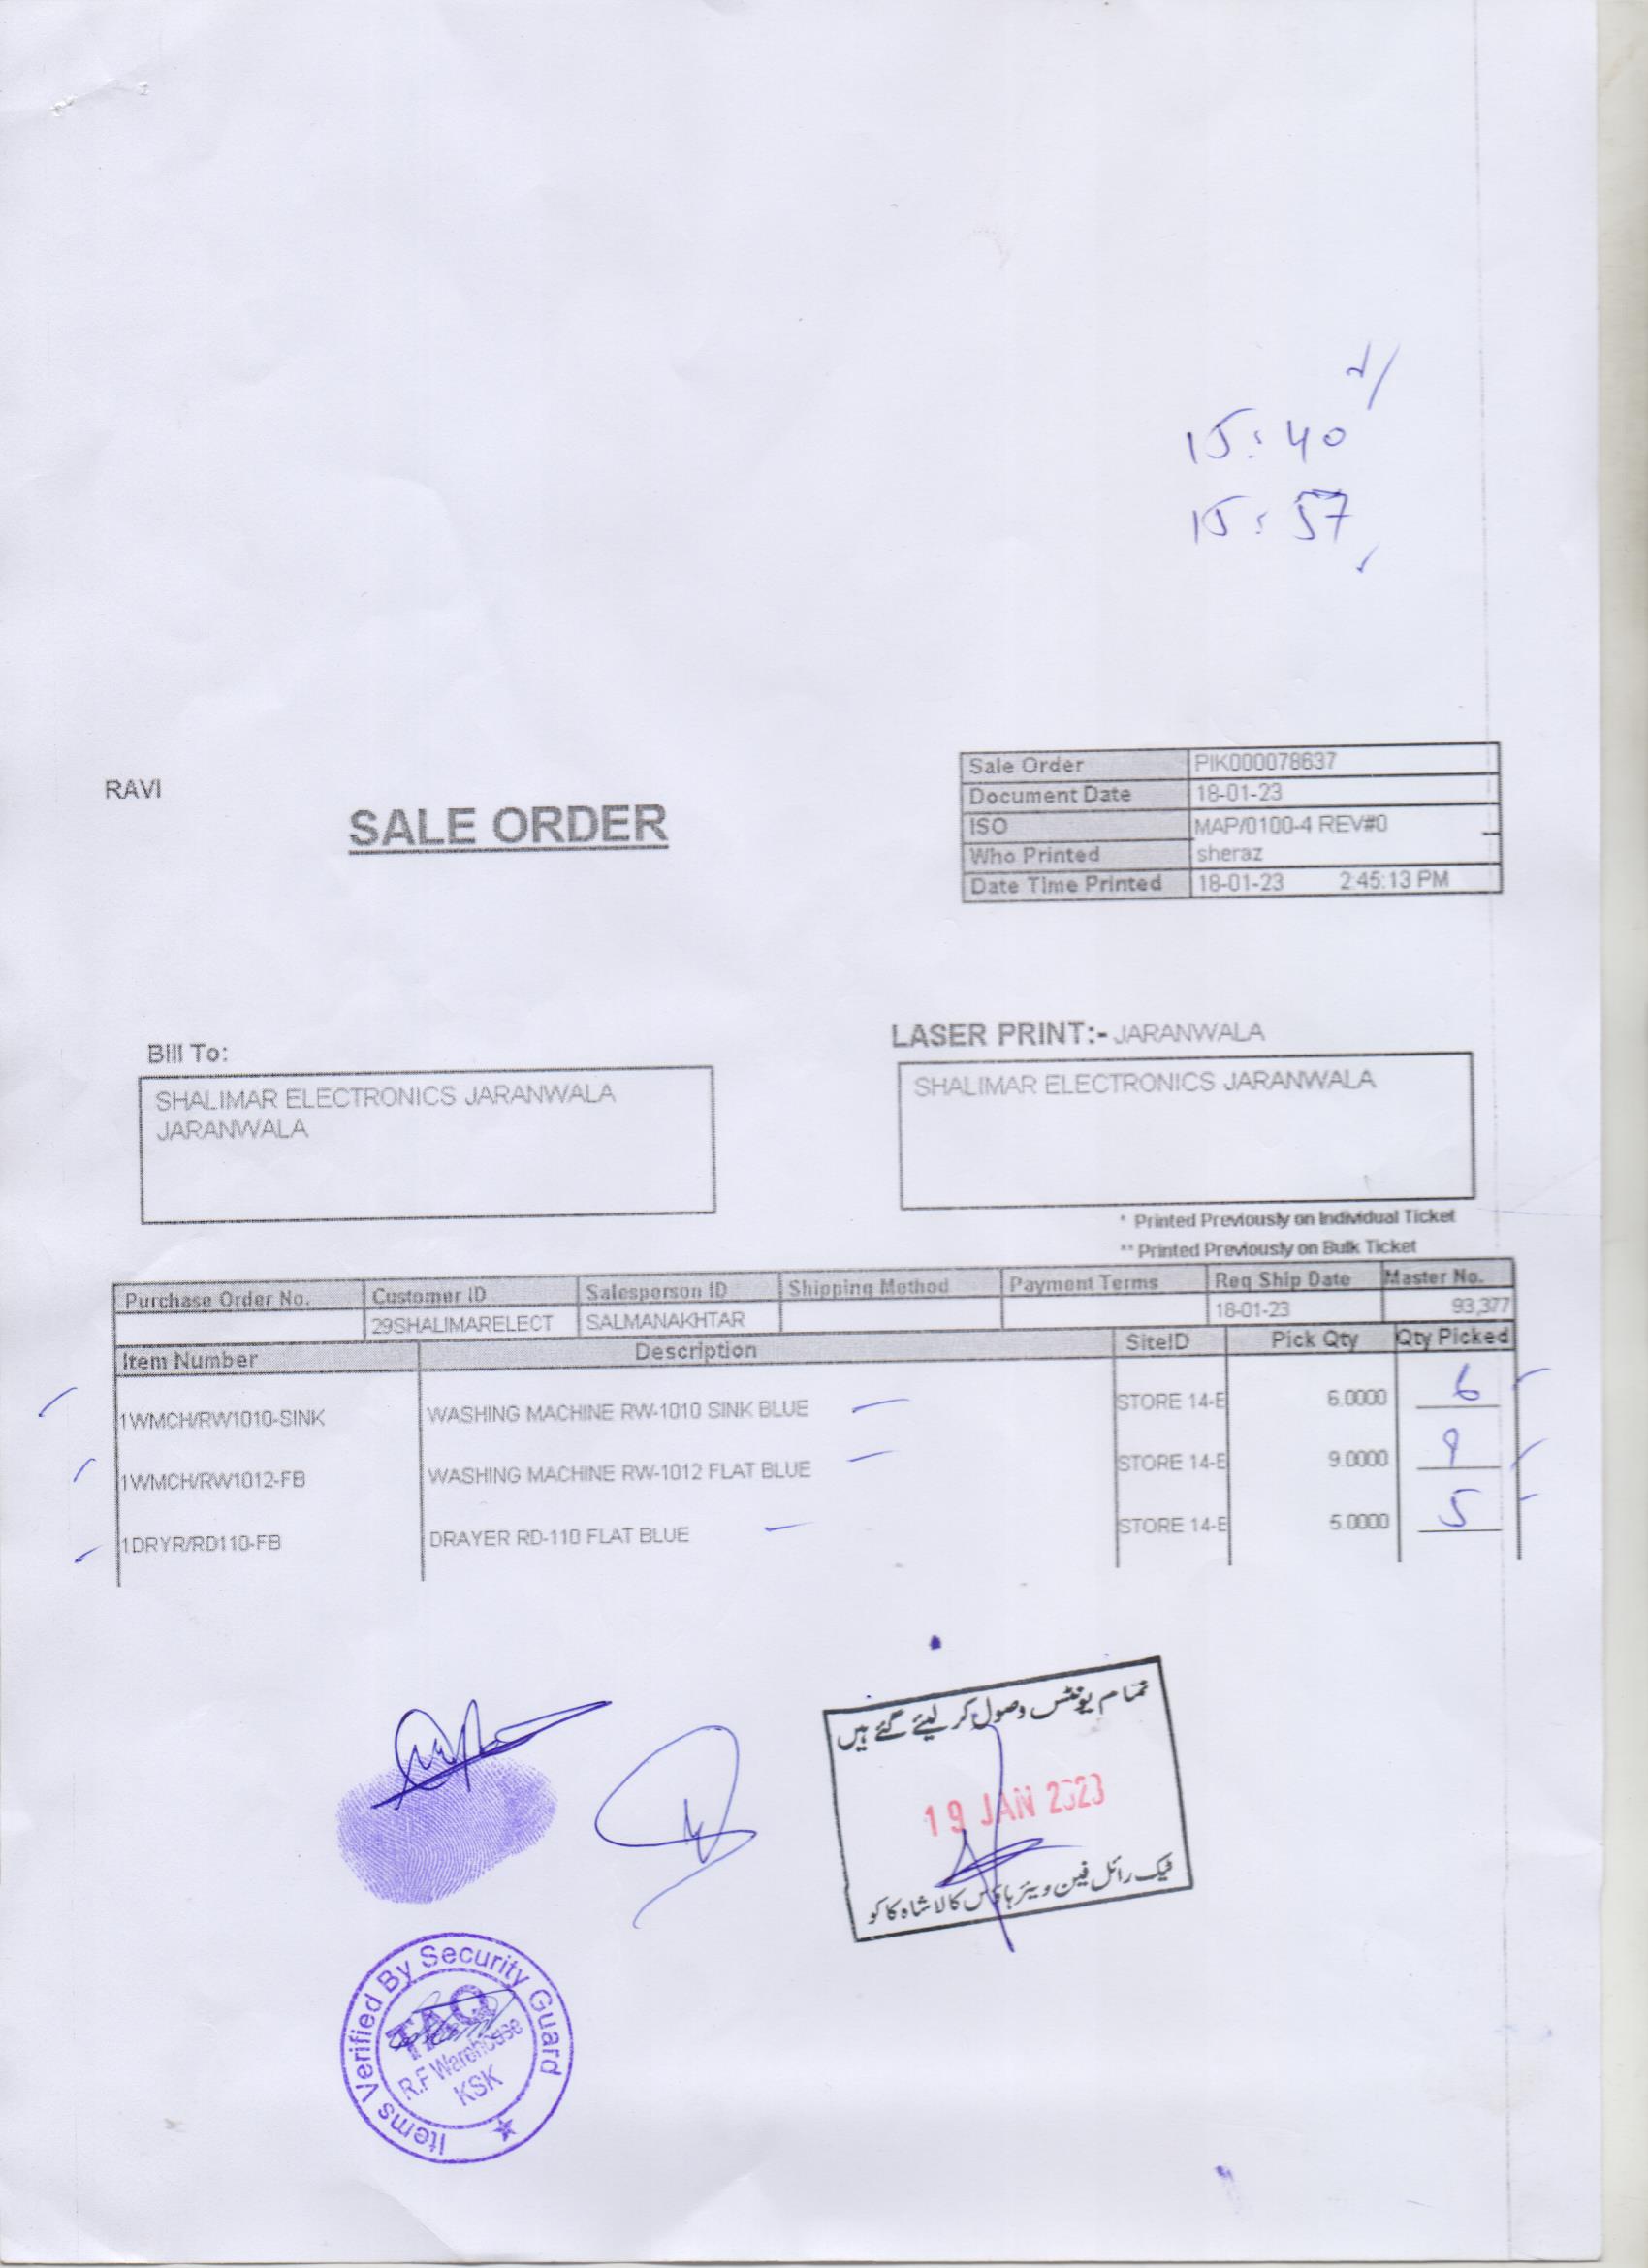 15:40
15:57
RAVI
SALE ORDER
Sale Order PIK000078637
Document Date 18-01-23
ISO MAP/0100-4 REV#0
Who Printed sheraz
Date Time Printed 18-01-23 2:45:13 PM
Bill To:
SHALIMAR ELECTRONICS JARANWALA
JARANWALA
LASER PRINT:- JARANWALA
SHALIMAR ELECTRONICS JARANWALA
* Printed Previously on Individual Ticket
** Printed Previously on Bulk Ticket
Purchase Order No. Customer ID Salesperson ID Shipping Method Payment Terms Req Ship Date Master No.
29SHALIMARELECT SALMANAKHTAR 18-01-23 93,377
Item Number Description SiteID Pick Qty Qty Picked
1WMCH/RW1010-SINK WASHING MACHINE RW-1010 SINK BLUE STORE 14-E 6.0000 6
1WMCH/RW1012-FB WASHING MACHINE RW-1012 FLAT BLUE STORE 14-E 9.0000 9
1DRYR/RD110-FB DRAYER RD-110 FLAT BLUE STORE 14-E 5.0000 5
تمام یونٹس وصول کر لیئے گئے ہیں
19 JAN 2023
فیک رائل فین ویئر ہاؤس کالا شاہ کاکو
Items Verified By Security Guard
TAQ
R.F Warehouse
KSK